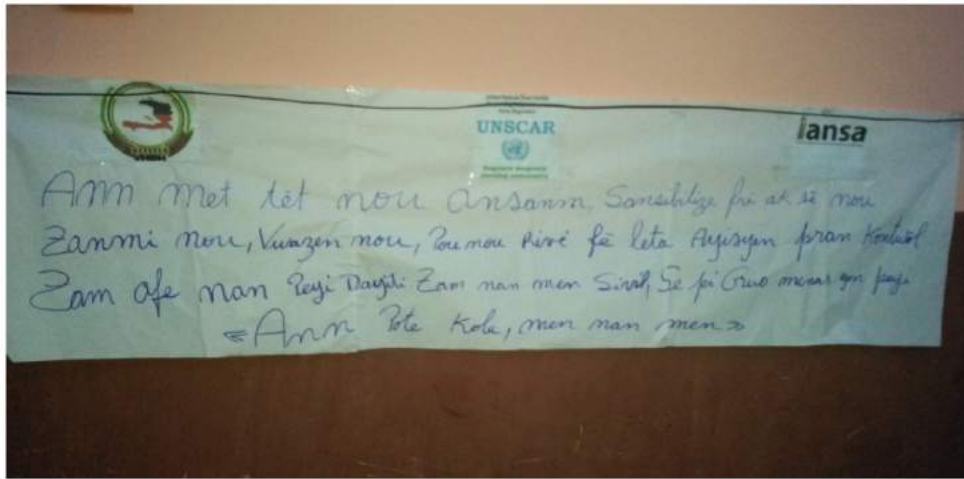 UNSCAR
iansa
Ann met tèt nou ansanm, Sansibilize frè ak sè nou
Zanmi nou, Vwazen nou, Pou nou Rivé fè leta Ayisyen pran Kontwòl
Zam afe nan Peyi Dayiti Zam nan men Sivil, Se pi Gwo menas yon peyi
«Ann Pote Kole, men nan men»